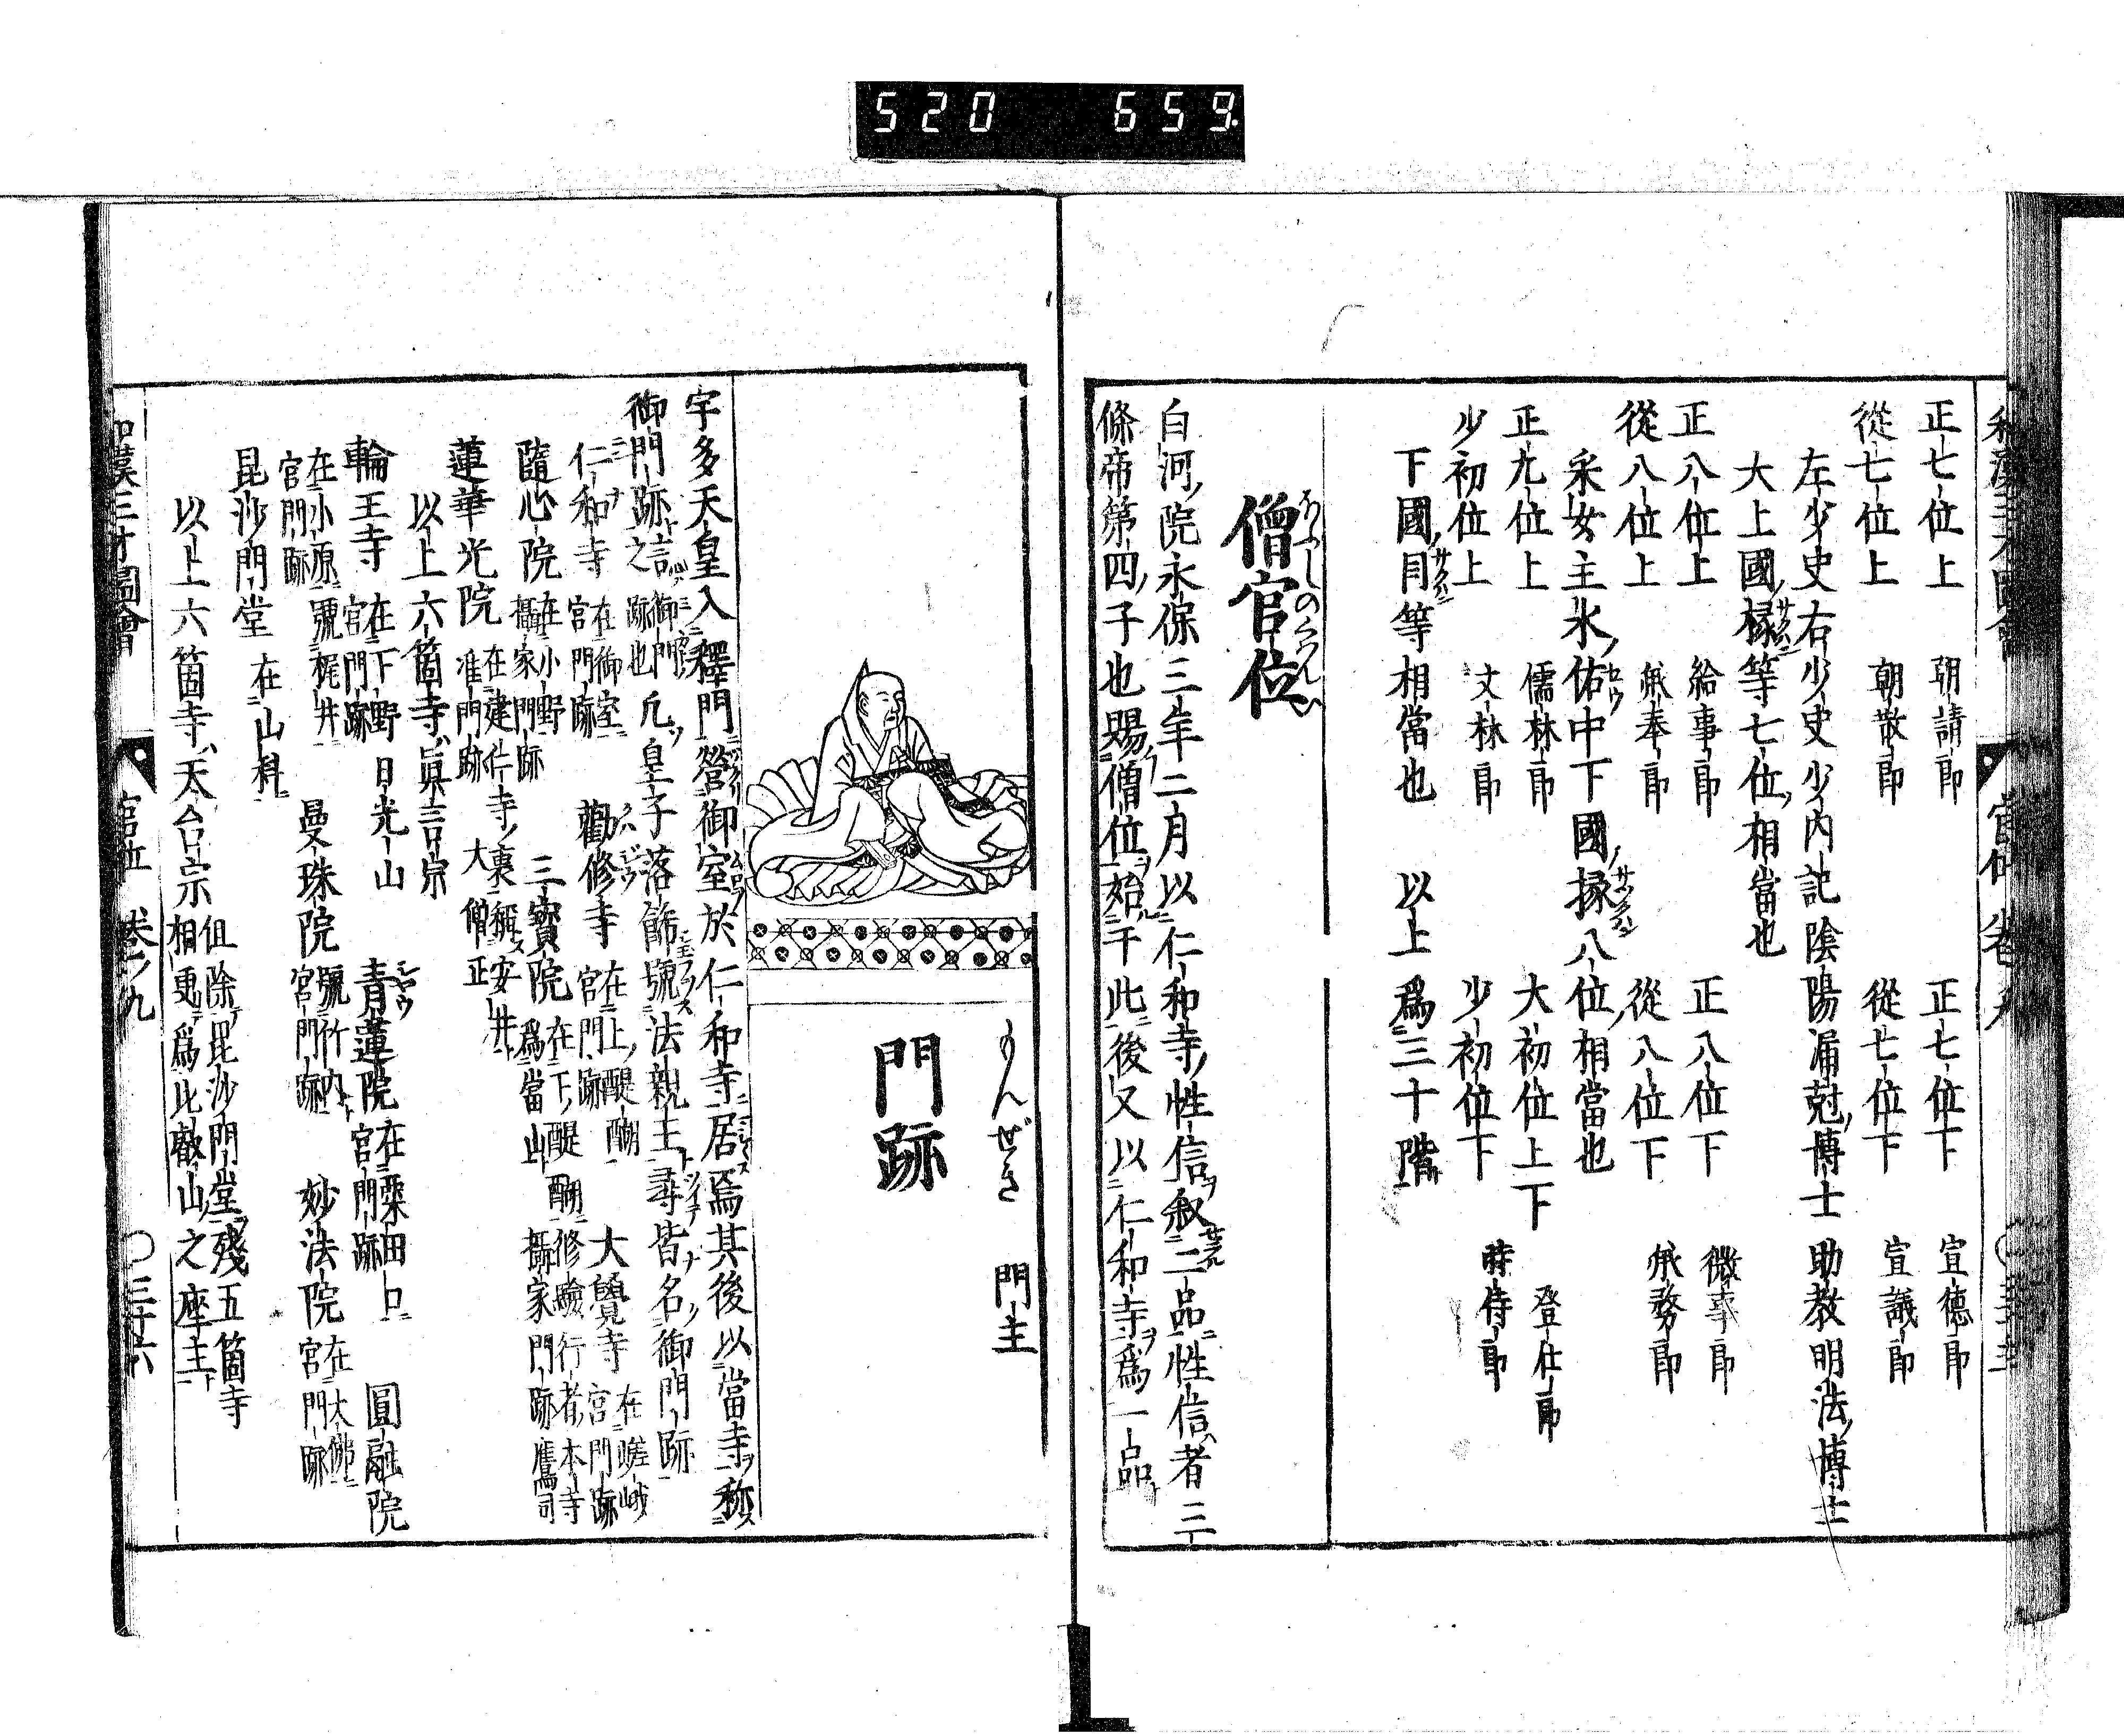 520 659
正七位上 朝請郎 正七位下 宣德郎
從七位上 朝散郎 從七位下 宣議郎
左少史右少史少内記陰陽漏尅博士助教明法博士
大上國掾等七位相當也
正八位上 給事郎 正八位下 徵事郎
從八位上 承奉郎 從八位下 承務郎
采女主水佑中下國掾八位相當也
正九位上 儒林郎 大初位上下 登仕郎
少初位上 文林郎 少初位下 將侍郎
下國目等相當也 以上爲三十階
僧官位
白河院永保三年二月以仁和寺性信叙二品性信者三
條帝第四子也賜僧位始于此後又以仁和寺爲一品
門跡 もんぜき 門主
宇多天皇入釋門營御室於仁和寺居焉其後以當寺稱
御門跡言御門之跡也凡皇子落飾號法親王尋皆名御門跡
仁和寺 在御室宮門跡 勸修寺 在上醍醐宮門跡 大覺寺 在嵯峨宮門跡
隨心院 在小野攝家門跡 三寶院 在下醍醐修驗行者本寺爲當山攝家門跡鷹司
蓮華光院 在建仁寺裏稱安井准門跡 大僧正
以上六箇寺眞言宗
輪王寺 在下野日光山宮門跡 青蓮院 在粟田口宮門跡 圓融院
在小原號梶井宮門跡 曼珠院 號竹内宮門跡 妙法院 在大佛宮門跡
昆沙門堂 在山科
以上六箇寺天台宗 但除毘沙門堂殘五箇寺相更爲比叡山之座主
和漢三才圖會 官位 卷ノ九 〇三十六